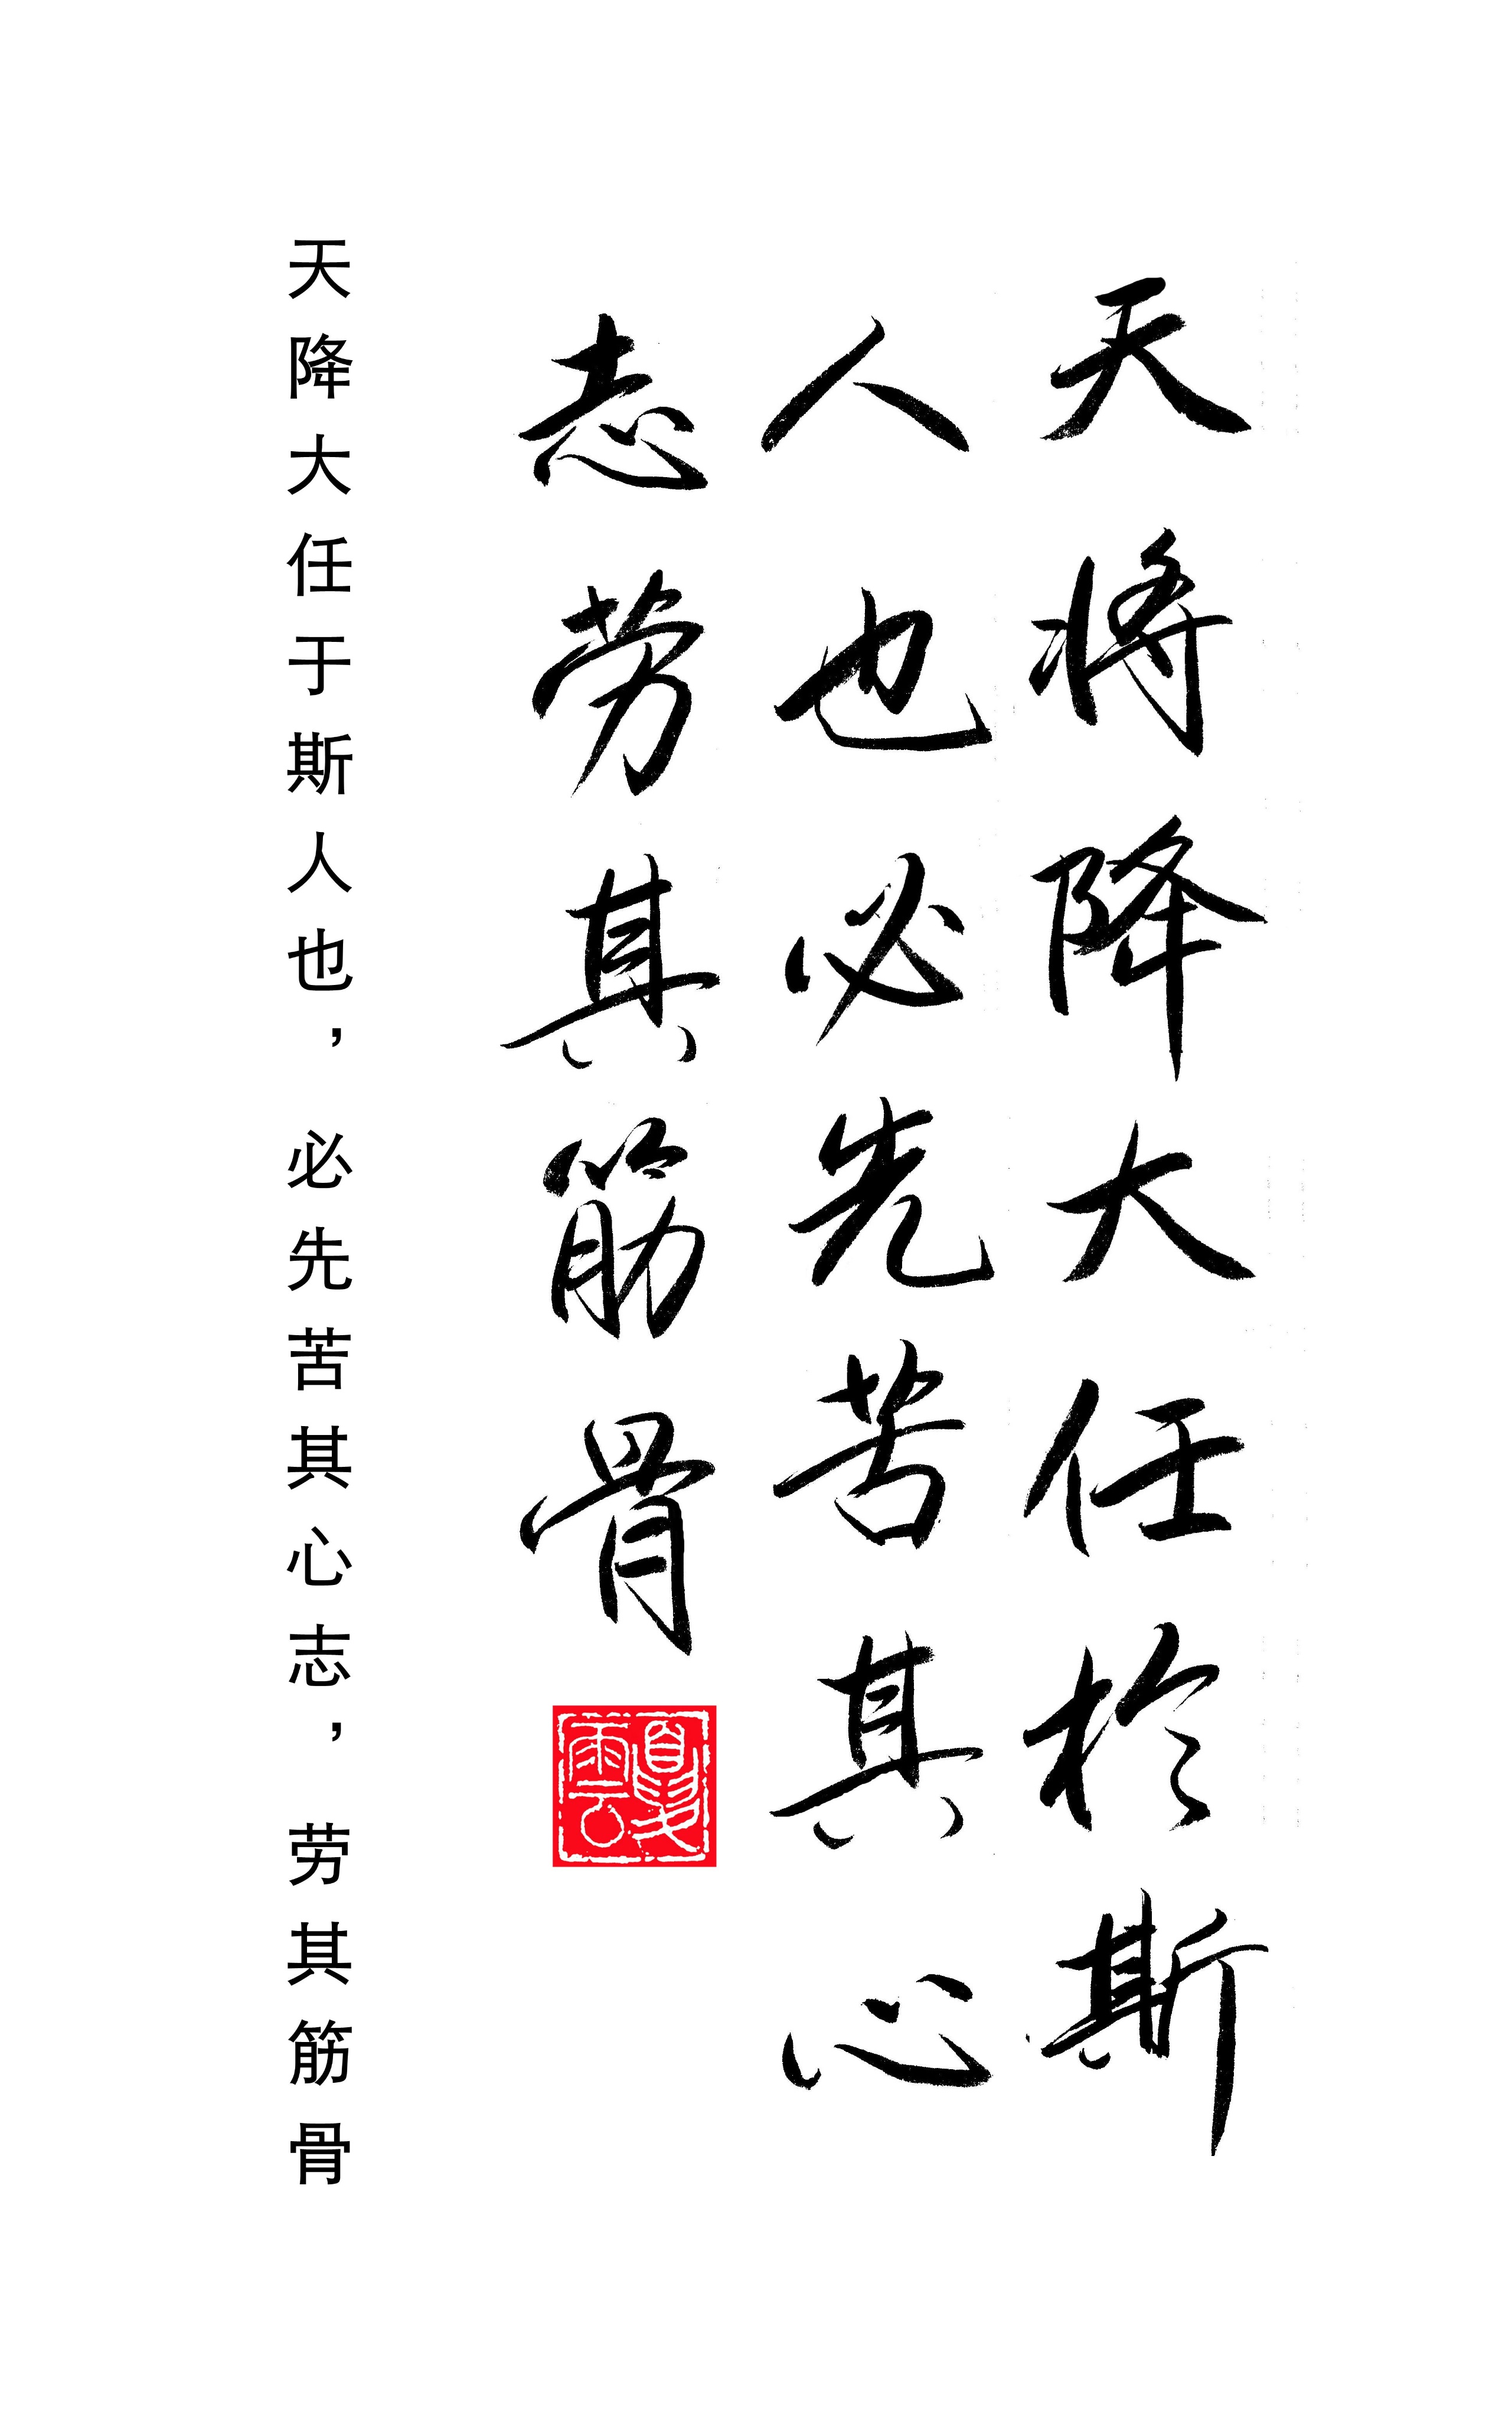 天将降大任於斯
人也必先苦其心
志劳其筋骨
夏雲
天降大任于斯人也，必先苦其心志，劳其筋骨